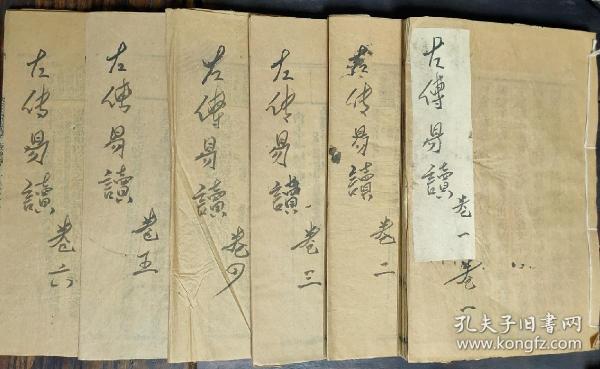 左傳易讀
卷一
卷一
左传易讀
卷二
左传易讀
卷三
左傳易讀
卷四
左傳易讀
卷五
左傳易讀
卷六
孔夫子旧书网
www.kongfz.com